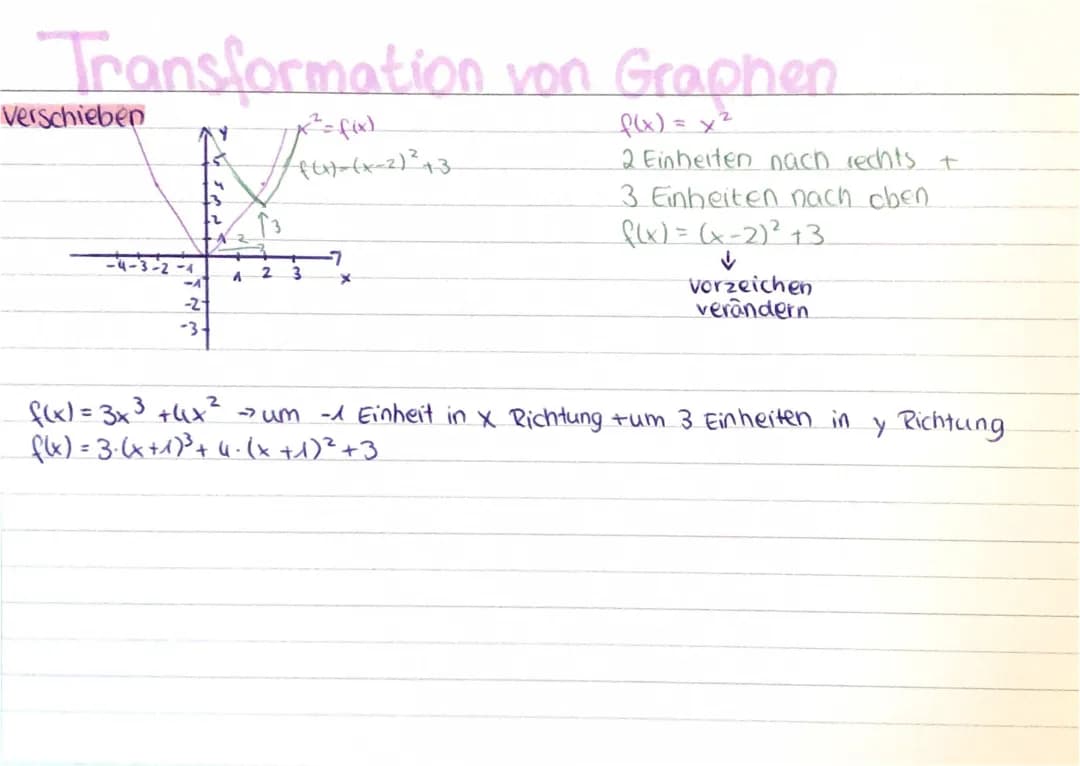 Transformation von Graphen
Verschieben
x²=f(x)
f(x)=(x-2)²+3
y
5
4
3
2
1
↑3
2
-4 -3 -2 -1
1 2 3
x
-1
-2
-3
f(x) = x²
2 Einheiten nach rechts +
3 Einheiten nach oben
f(x) = (x-2)² +3
↓
vorzeichen
verändern
f(x) = 3x³ +4x² → um -1 Einheit in x Richtung + um 3 Einheiten in y Richtung
f(x) = 3·(x+1)³ + 4·(x+1)² +3